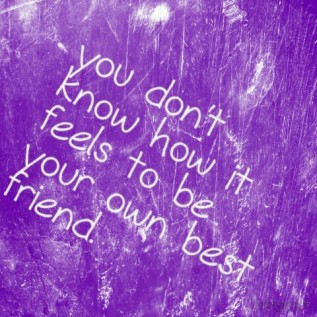 you don't
know how it
feels to be
your own best
friend.